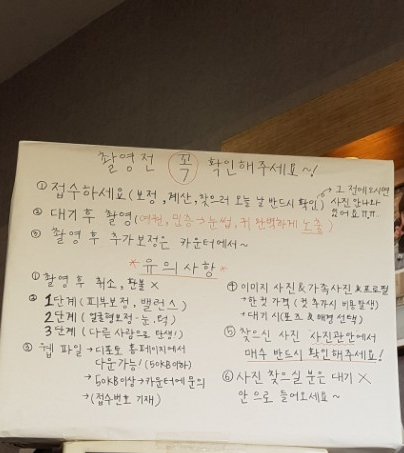 촬영전 꼭 확인해주세요~!
① 접수하세요 (보정, 계산, 찾으러 오늘 날 반드시 확인)
그 전에오시면
사진 안나와
있어요 ㅠㅠ
② 대기 후 촬영 (여권, 민증→눈썹, 귀 완벽하게 노출)
③ 촬영 후 추가보정은 카운터에서~
* 유의사항 *
① 촬영 후 취소, 환불 X
② 1단계 (피부보정, 밸런스)
2단계 (얼굴형보정·눈·턱)
3단계 (다른 사람으로 탄생!)
③ 웹 파일 → 디포토 홈페이지에서
다운가능! (50KB이하)
→ 50KB이상→카운터에 문의
→ (접수번호 기재)
④ 이미지 사진 & 가족사진 & 프로필
→ 한 컷 가격 (컷 추가시 비용발생)
→ 대기시 (포즈 & 배경 선택)
⑤ 찾으신 사진 사진관안에서
매수 반드시 확인해주세요!
⑥ 사진 찾으실 분은 대기 X
안으로 들어오세요~